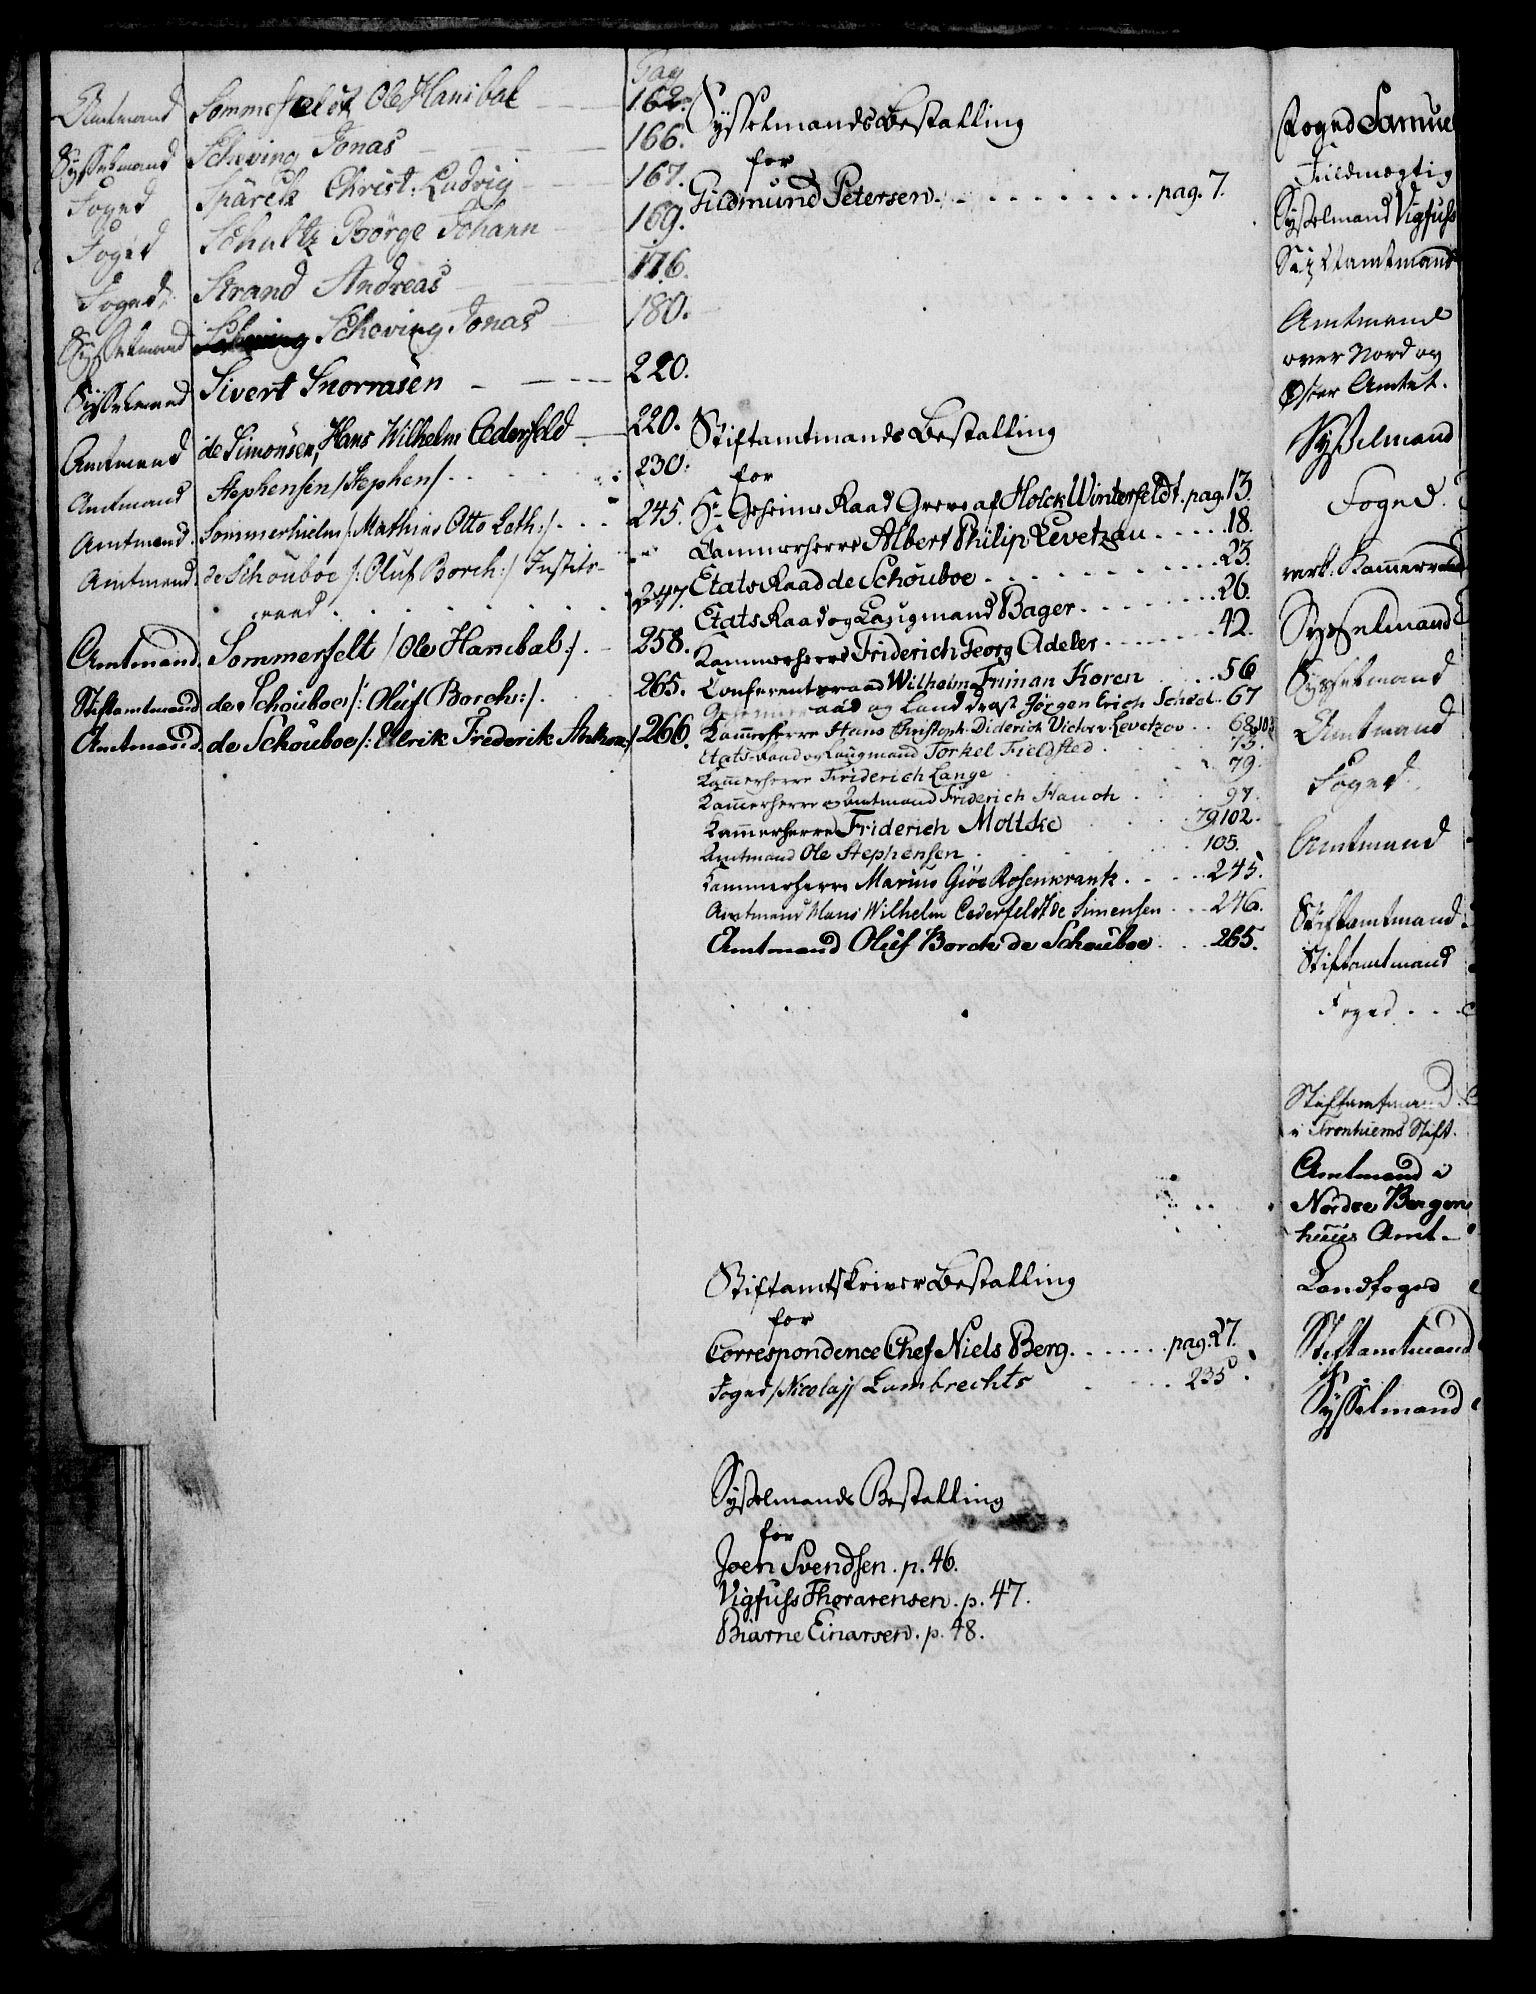 Pag
Amtmand Sommerfeldt Ole Hanibal 162.
Sysselmand Scheving Jonas 166.
Foged Spärck Christ. Ludvig 167.
Foged Schultz Börge Johann 169.
Foged Strand Andreas 176.
Sysselmand Scheving Jonas 180.
Sysselmand Sivert Snorrasen 220.
Amtmand de Simonsen, Hans Wilhelm Cederfeld 220.
Amtmand Stephensen /Stephen/ 230.
Amtmand Sommerhielm /:Mathias Otto Leth:/ 245.
Amtmand de Schouboe /:Oluf Borch:/ Justits-
raad 247.
Amtmand Sommerfelt /Ole Hanibal:/ 258.
Stiftamtmand de Schouboe /:Oluf Borch:/ 265.
Amtmand de Schouboe /: Ulrik Frederik Anton:/ 266.
Sysselmands Bestalling
for
Gudmund Petersen pag. 7.
Stiftamtmands Bestalling
for
Hr Geheime Raad Greve af Holck Winterfeldt. pag. 13.
Cammerherre Albert Philip Levetzau 18.
Etats Raad de Schouboe 23.
Etats Raad og Laugmand Bager 26.
Kammerherre Friderich Georg Adeler 42.
Conferentsraad Wilhelm Friman Koren 56
og Landdrost Jørgen Erich Scheel 67
Kammerherre Hans Christoph Diderich Victor v Levetzov 68. 103
Etats-raad og Laugmand Torkel Fieldsted 73.
Kammerherre Friderich Lange 79.
Kammerherre og Amtmand Friderich Hauch 97.
Kammerherre Friderich Moltke 79. 102.
Amtmand Ole Stephensen 105.
Kammerherre Marius Giøe Rosenkrantz 245.
Amtmand Hans Wilhelm Cederfeldt de Simensen 246.
Amtmand Oluf Borch de Schouboe 265.
Stiftamtskriver Bestalling
for
Correspondence Chef Niels Berg pag. 27.
Foged /Nicolaj/ Lambrechts 235.
Sysselmands Bestalling
for
Joen Svendsen. p. 46.
Vigfuss Thorarensen. p. 47.
Biarne Einarsen. p. 48.
Foged Samuel
Fuldmægtig
Sysselmand Vigfuss
Stiftamtmand
Amtmand
over Nord og
Øster Amtet.
Sysselmand
Foged
Kammerraad
Sysselmand
Sysselmand
Amtmand
Foged
Amtmand
Stiftamtmand
Stiftamtmand
Foged
Stiftamtmand
i Tronhiems Stift.
Amtmand i
Nordre Bergen
huus Amt
Landfoged
Stiftamtmand
Sysselmand